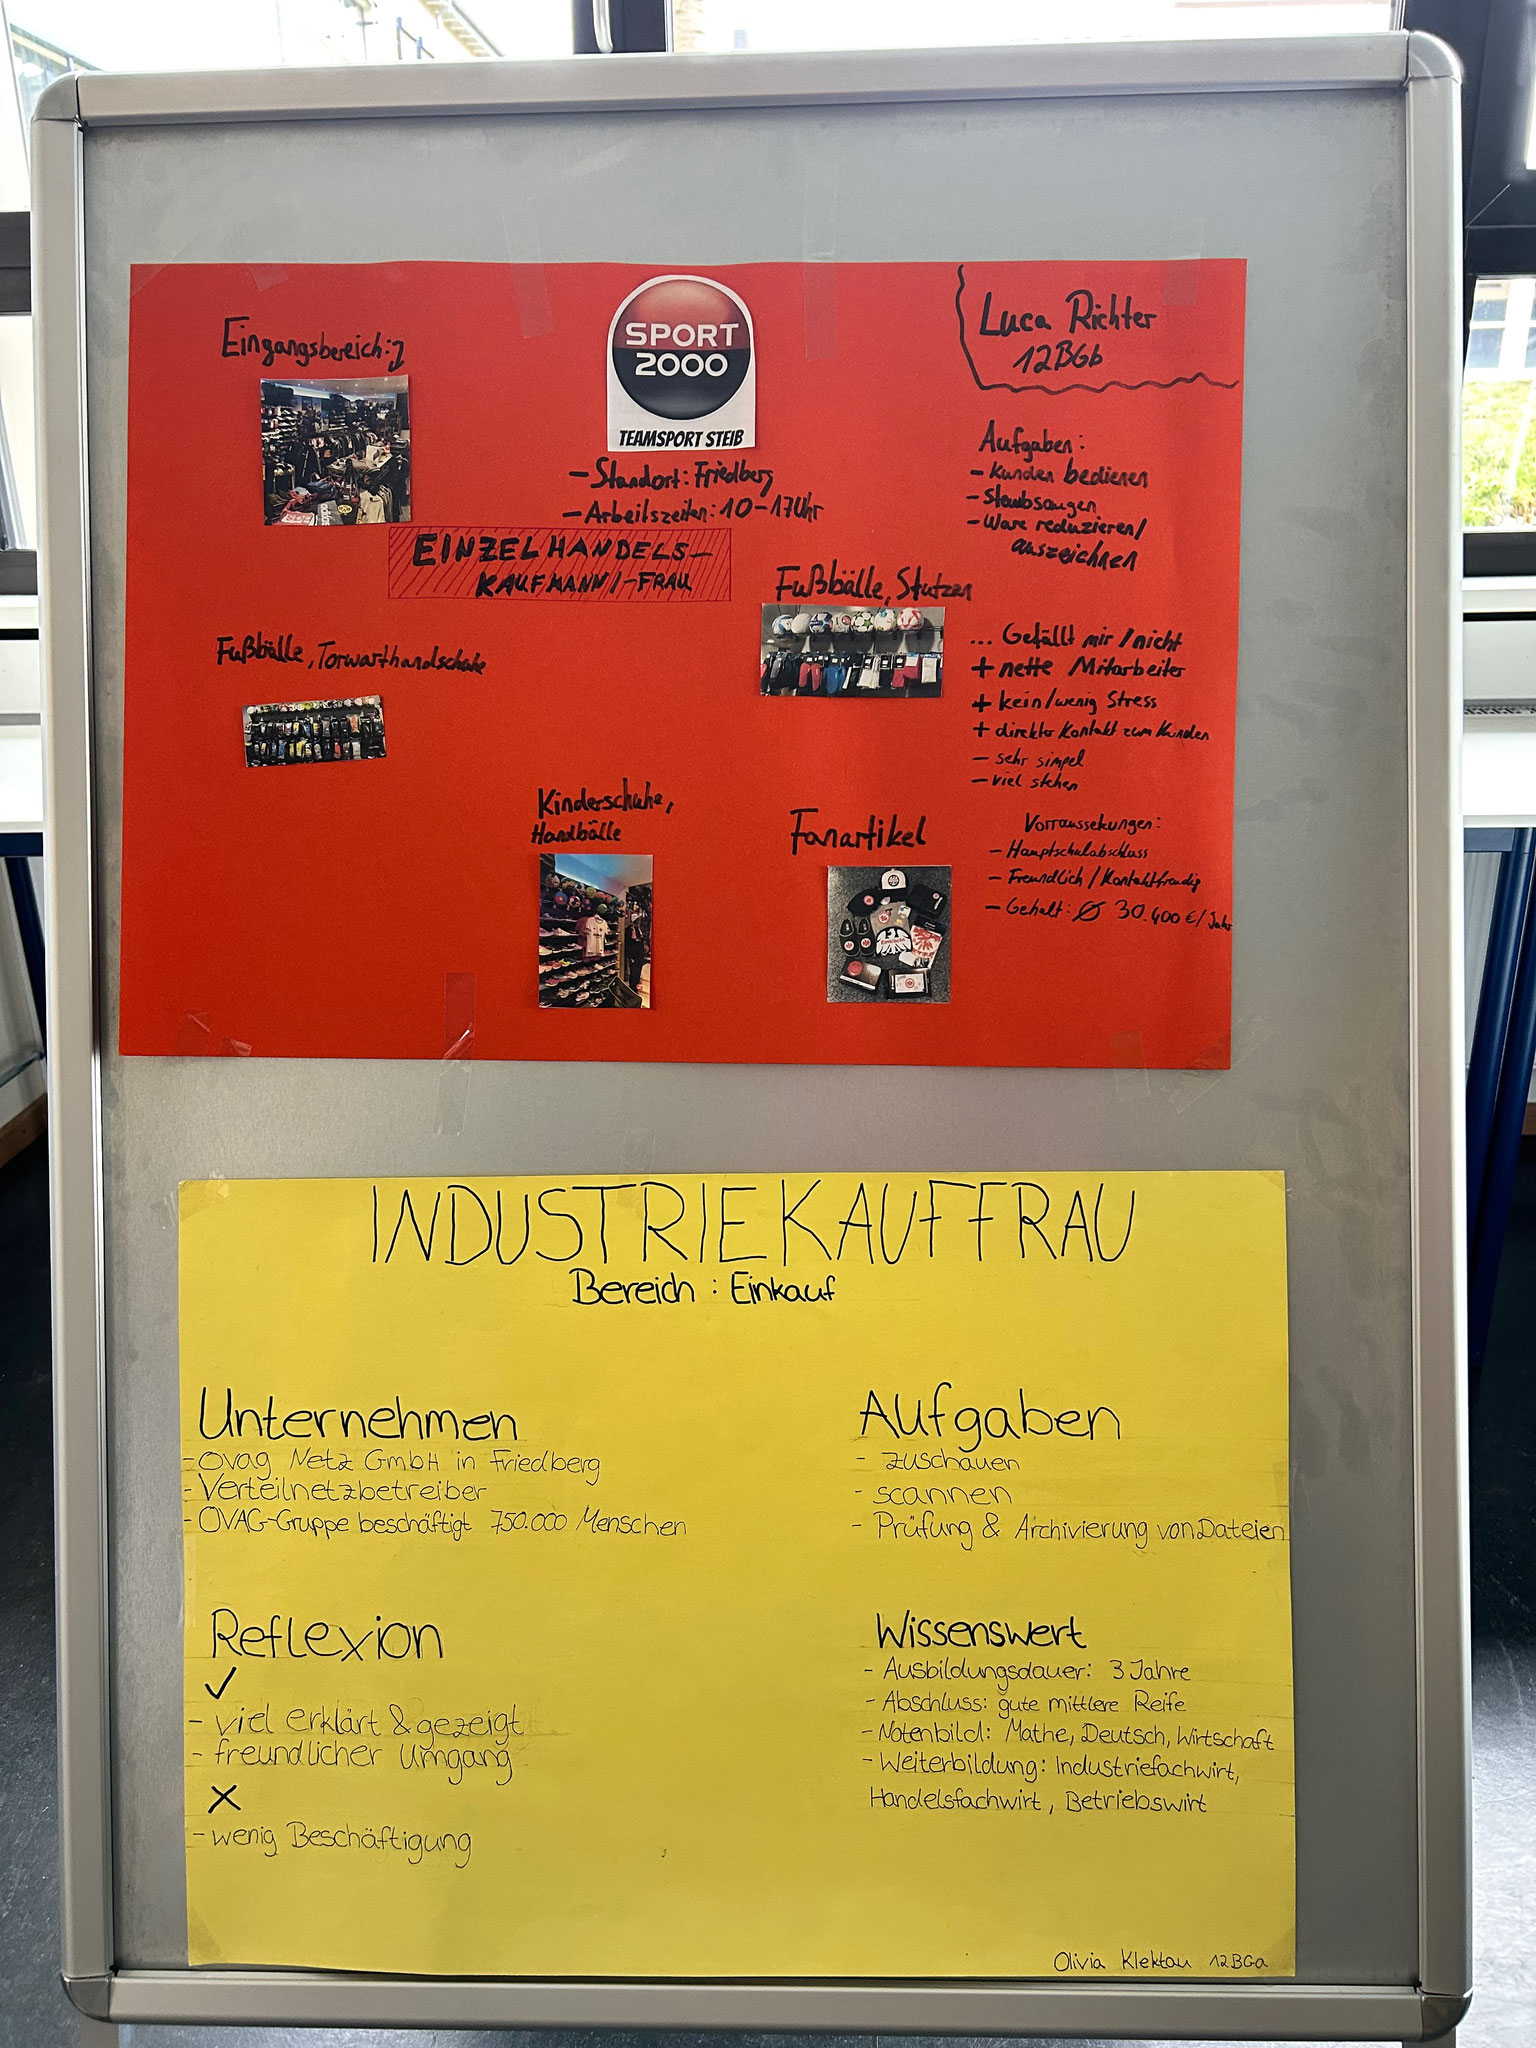 Eingangsbereich:
SPORT
2000
TEAMSPORT STEIB
- Standort: Friedberg
- Arbeitszeiten: 10-17Uhr
EINZELHANDELS-
KAUFMANN/-FRAU
Luca Richter
12BGb
Aufgaben:
- Kunden bedienen
- Staubsaugen
- Ware reduzieren/
auszeichnen
Fußbälle, Stutzen
Fußbälle, Torwarthandschuhe
... Gefällt mir/nicht
+ nette Mitarbeiter
+ kein/wenig Stress
+ direkter Kontakt zum Kunden
- sehr simpel
- viel stehen
Kinderschuhe,
Handbälle
Fanartikel
Vorraussetzungen:
- Hauptschulabschluss
- Freundlich/Kontaktfreudig
- Gehalt: Ø 30.400€/Jahr
INDUSTRIEKAUFFRAU
Bereich: Einkauf
Unternehmen
- OVAG Netz GmbH in Friedberg
- Verteilnetzbetreiber
- OVAG-Gruppe beschäftigt 750.000 Menschen
Aufgaben
- zuschauen
- scannen
- Prüfung & Archivierung von Dateien
Reflexion
✓
- viel erklärt & gezeigt
- freundlicher Umgang
X
- wenig Beschäftigung
Wissenswert
- Ausbildungsdauer: 3 Jahre
- Abschluss: gute mittlere Reife
- Notenbild: Mathe, Deutsch, Wirtschaft
- Weiterbildung: Industriefachwirt,
Handelsfachwirt, Betriebswirt
Olivia Klektau 12BGa